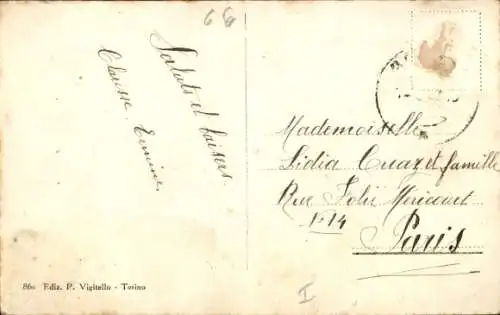 Saluts et baisers
Clausse Emine
Mademoiselle
Lidia Cuaz et famille
Rue Folie Mericourt
Paris
866 Ediz. P. Vigitello - Torino
I